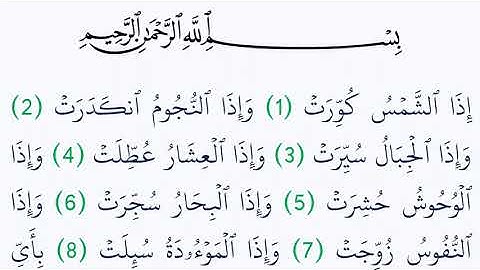 بِسْمِ ٱللَّهِ ٱلرَّحْمَٰنِ ٱلرَّحِيمِ
إِذَا ٱلشَّمْسُ كُوِّرَتْ (1) وَإِذَا ٱلنُّجُومُ ٱنكَدَرَتْ (2)
وَإِذَا ٱلْجِبَالُ سُيِّرَتْ (3) وَإِذَا ٱلْعِشَارُ عُطِّلَتْ (4) وَإِذَا
ٱلْوُحُوشُ حُشِرَتْ (5) وَإِذَا ٱلْبِحَارُ سُجِّرَتْ (6) وَإِذَا
ٱلنُّفُوسُ زُوِّجَتْ (7) وَإِذَا ٱلْمَوْءُۥدَةُ سُئِلَتْ (8) بِأَيِّ